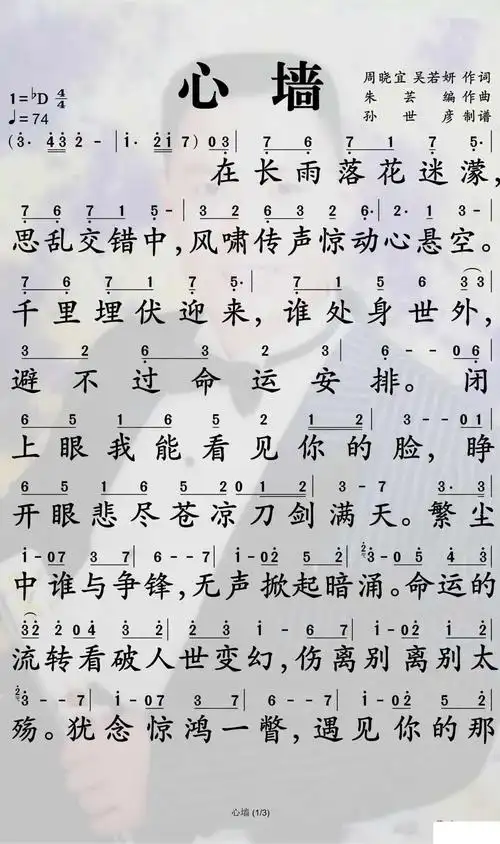 心 墙
周晓宜 吴若妍 作词
1=♭D 4/4
朱 芸 编 作曲
♩=74
孙 世 彦 制谱
(3· 432- | i· 2i7) 03 | 7 6 7 1 5· |
在长雨落花迷濛,
7 6 7 1 5- | 3 2 6 3 2· | 2· 1 3- |
思乱交错中,风啸传声惊动心悬空。
7 6 7 1 7 5· | 7 1 5 6 3 3 |
千里埋伏迎来,谁处身世外,
3 2 6 3 2 3 | 6-- 06 |
避不过命运安排。闭
6 5 1 6 5 2 1 2 | 3--01 |
上眼我能看见你的脸,睁
6 5 1 6 5 2 0 1 2 | 3--7 | 3·3 |
开眼悲尽苍凉刀剑满天。繁尘
i-07 3 7 | 6--7 | i-02 5 2 | 3-05 4 3 |
中谁与争锋,无声掀起暗涌。命运的
32 2 04 3 2 | 2 i- 6 7 | i-07 3 2 |
流转看破人世变幻,伤离别离别太
3--7 | i-07 3 7 | 6--7 | i-02 5 2 |
殇。犹念惊鸿一瞥,遇见你的那
心墙 (1/3)